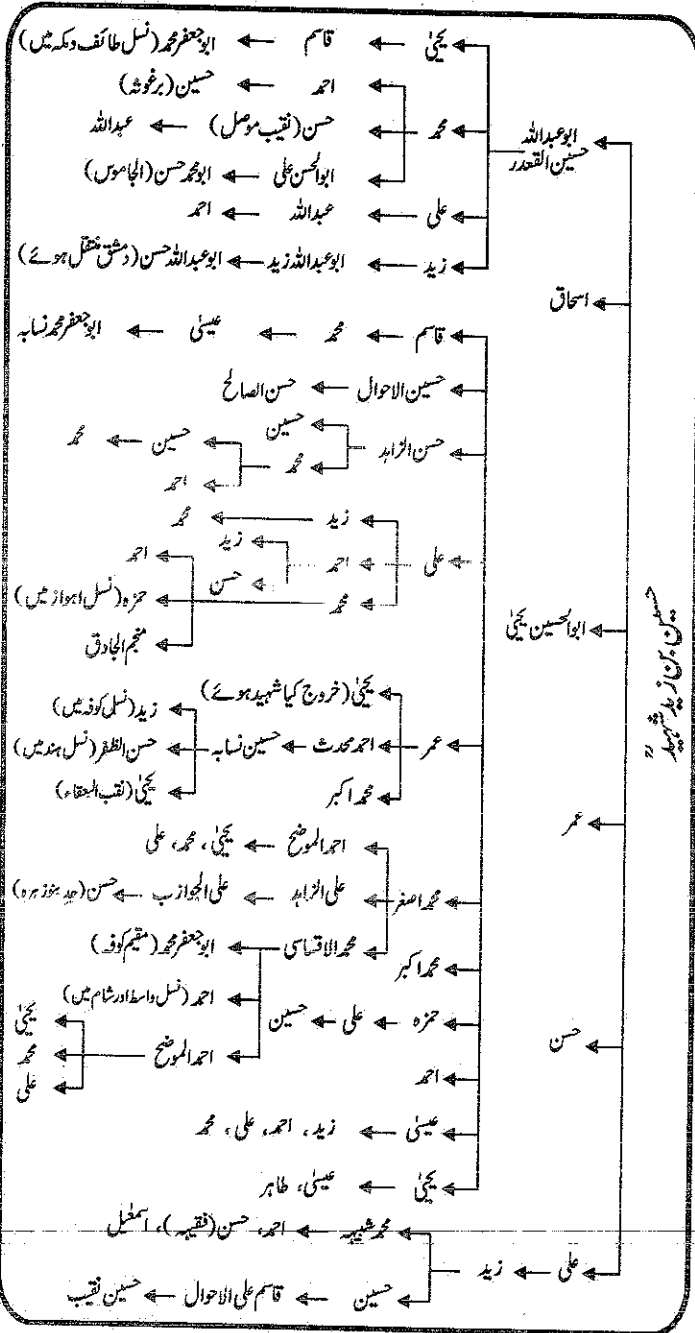 حسین بن زید شہیدؒ
ابوعبداللہ
حسین القعدر
یحییٰ ← قاسم ← ابوجعفر محمد (نسل طائف ومکہ میں)
احمد ← حسین (برغوثہ)
محمد ← حسن (نقیب موصل) ← عبداللہ
ابوالحسن علی ← ابومحمد حسن (الجاموس)
علی ← عبداللہ ← احمد
زید ← ابوعبداللہ زید ← ابوعبداللہ حسن (دمشق منتقل ہوئے)
اسحاق
ابوالحسین یحییٰ
قاسم ← محمد ← عیسیٰ ← ابوجعفر محمد نسابہ
حسین الاحوال ← حسن الصالح
حسن الزاہد ← حسین
محمد ← حسین ← محمد
احمد
علی ← زید ← محمد
احمد ← زید
حسن
محمد ← احمد
حمزہ (نسل اہواز میں)
منجم الجادق
عمر ← یحییٰ (خروج کیا شہید ہوئے)
احمد محدث ← حسین نسابہ ← زید (نسل کوفہ میں)
حسن الظفر (نسل ہند میں)
یحییٰ (نقب العقاء)
محمد اکبر
محمد اصغر ← احمد الموضح ← یحییٰ، محمد، علی
علی الزاہد ← علی الجوازب ← حسن (جد بنوزہرہ)
محمد الاقساسی ← ابوجعفر محمد (مقیم کوفہ)
احمد (نسل واسط اور شام میں)
احمد الموضح ← یحییٰ
محمد
علی
محمد اکبر
حمزہ ← علی ← حسین
احمد
عیسیٰ ← زید، احمد، علی، محمد
یحییٰ ← عیسیٰ، طاہر
عمر
حسن
علی ← زید ← محمد شبیہہ ← احمد، حسن (فقیہہ)، اسمٰعیل
حسین ← قاسم علی الاحوال ← حسین نقیب